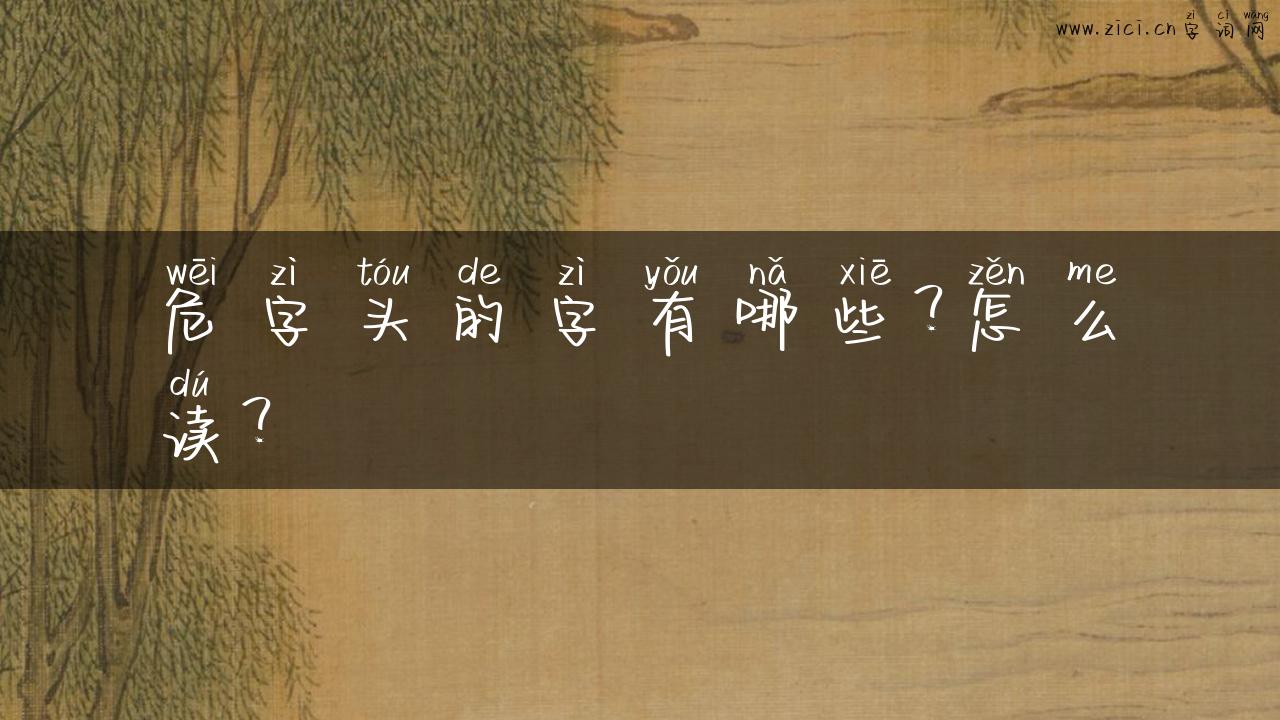 zì cí wǎng
www.zici.cn 字词网
wēi zì tóu de zì yǒu nǎ xiē zěn me
危字头的字有哪些？怎么
dú
读？